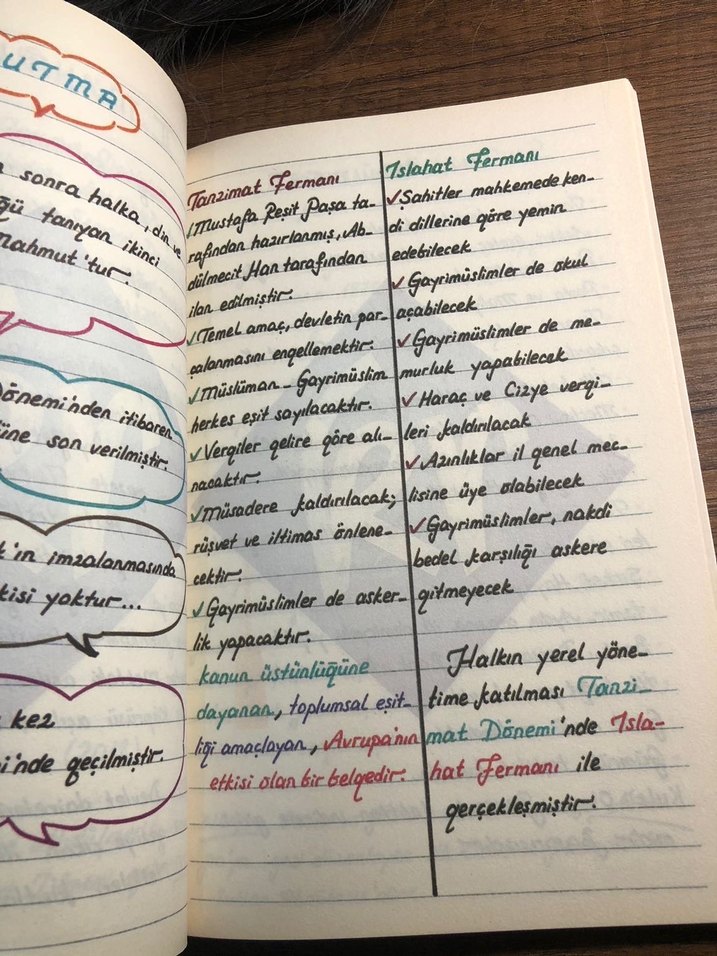 UTMA
sonra halka, din ve
ğü tanıyan ikinci
Mahmut'tur.
Dönemi'nden itibaren
üne son verilmiştir.
k'ın imzalanmasında
kisi yoktur...
kez
i'nde geçilmiştir.
Tanzimat Fermanı
✓Mustafa Reşit Paşa ta-
rafından hazırlanmış, Ab-
dülmecit Han tarafından
ilan edilmiştir.
✓Temel amaç, devletin par-
çalanmasını engellemektir.
✓Müslüman - Gayrimüslim
herkes eşit sayılacaktır.
✓Vergiler gelire göre alı-
nacaktır.
✓Müsadere kaldırılacak;
rüşvet ve iltimas önlene-
cektir.
✓Gayrimüslimler de asker-
lik yapacaktır.
kanun üstünlüğüne
dayanan, toplumsal eşit-
liği amaçlayan, Avrupa'nın
etkisi olan bir belgedir.
Islahat Fermanı
✓Şahitler mahkemede ken-
di dillerine göre yemin
edebilecek
✓Gayrimüslimler de okul
açabilecek
✓Gayrimüslimler de me-
murluk yapabilecek
✓Haraç ve Cizye vergi-
leri kaldırılacak
✓Azınlıklar il genel mec-
lisine üye olabilecek
✓Gayrimüslimler, nakdi
bedel karşılığı askere
gitmeyecek
Halkın yerel yöne-
time katılması Tanzi-
mat Dönemi'nde Isla-
hat Fermanı ile
gerçekleşmiştir.